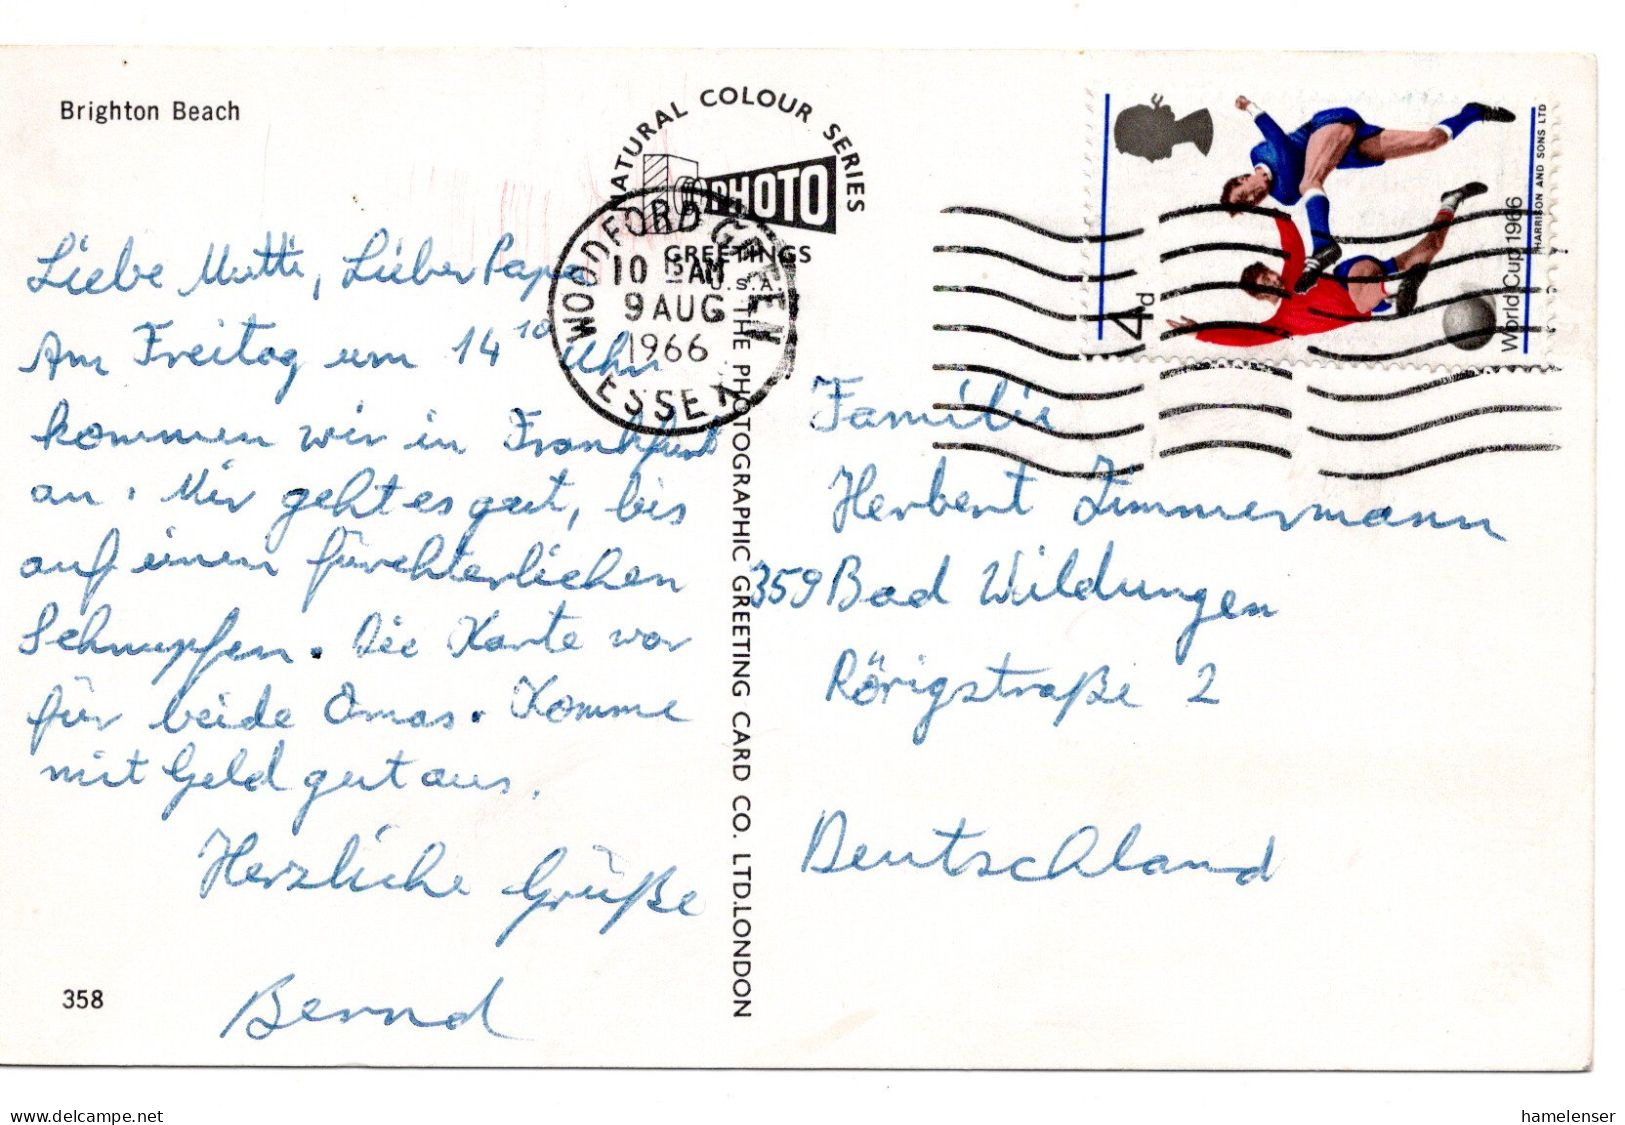 Brighton Beach
NATURAL COLOUR SERIES
PHOTO
GREETINGS
U.S.A.
THE PHOTOGRAPHIC GREETING CARD CO. LTD. LONDON
WOODFORD GREEN
10 15 AM
9 AUG
1966
ESSEX
4d
World Cup 1966
HARRISON AND SONS LTD
Liebe Mutti, Lieber Papa
Am Freitag um 14 10 Uhr
kommen wir in Frankfurt
an. Mir geht es gut, bis
auf einen fürchterlichen
Schnupfen. Die Karte war
für beide Omas. Komme
mit Geld gut aus.
Herzliche Grüße
Bernd
358
Familie
Herbert Zimmermann
359 Bad Wildungen
Rörigstraße 2
Deutschland
delcampe.net
hamelenser